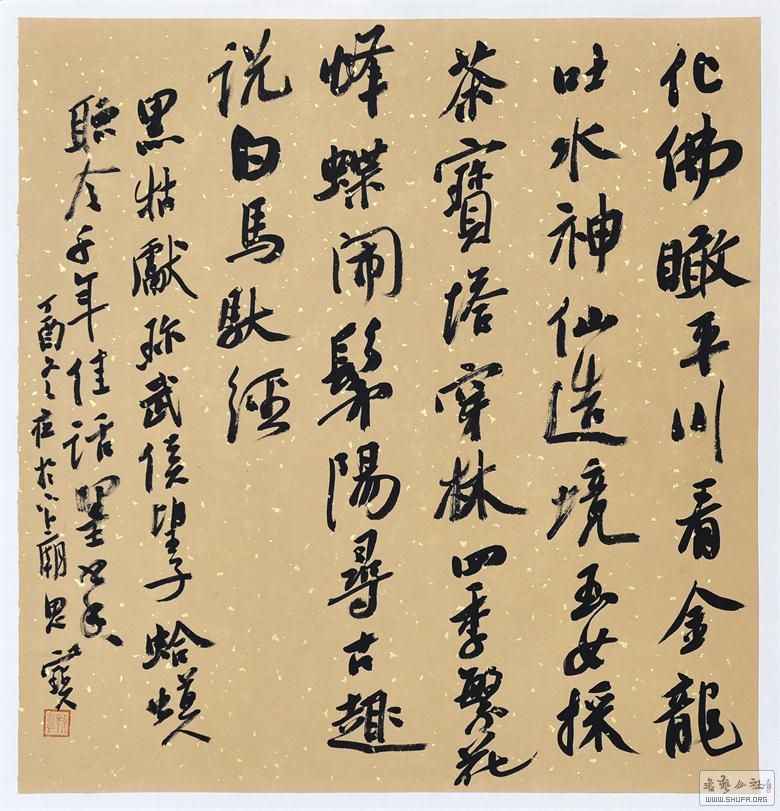 化佛瞰平川看金龍
吐水神仙造境玉女採
茶寶塔穿林四季繁花
蜂蝶闹鬆陽尋古趣
说白馬馱經
黑牯獻珎武侯望子蛤蟆
聴令千年佳話墨
丁酉冬於廟思寶
書藝公社
WWW.SHUFA.ORG